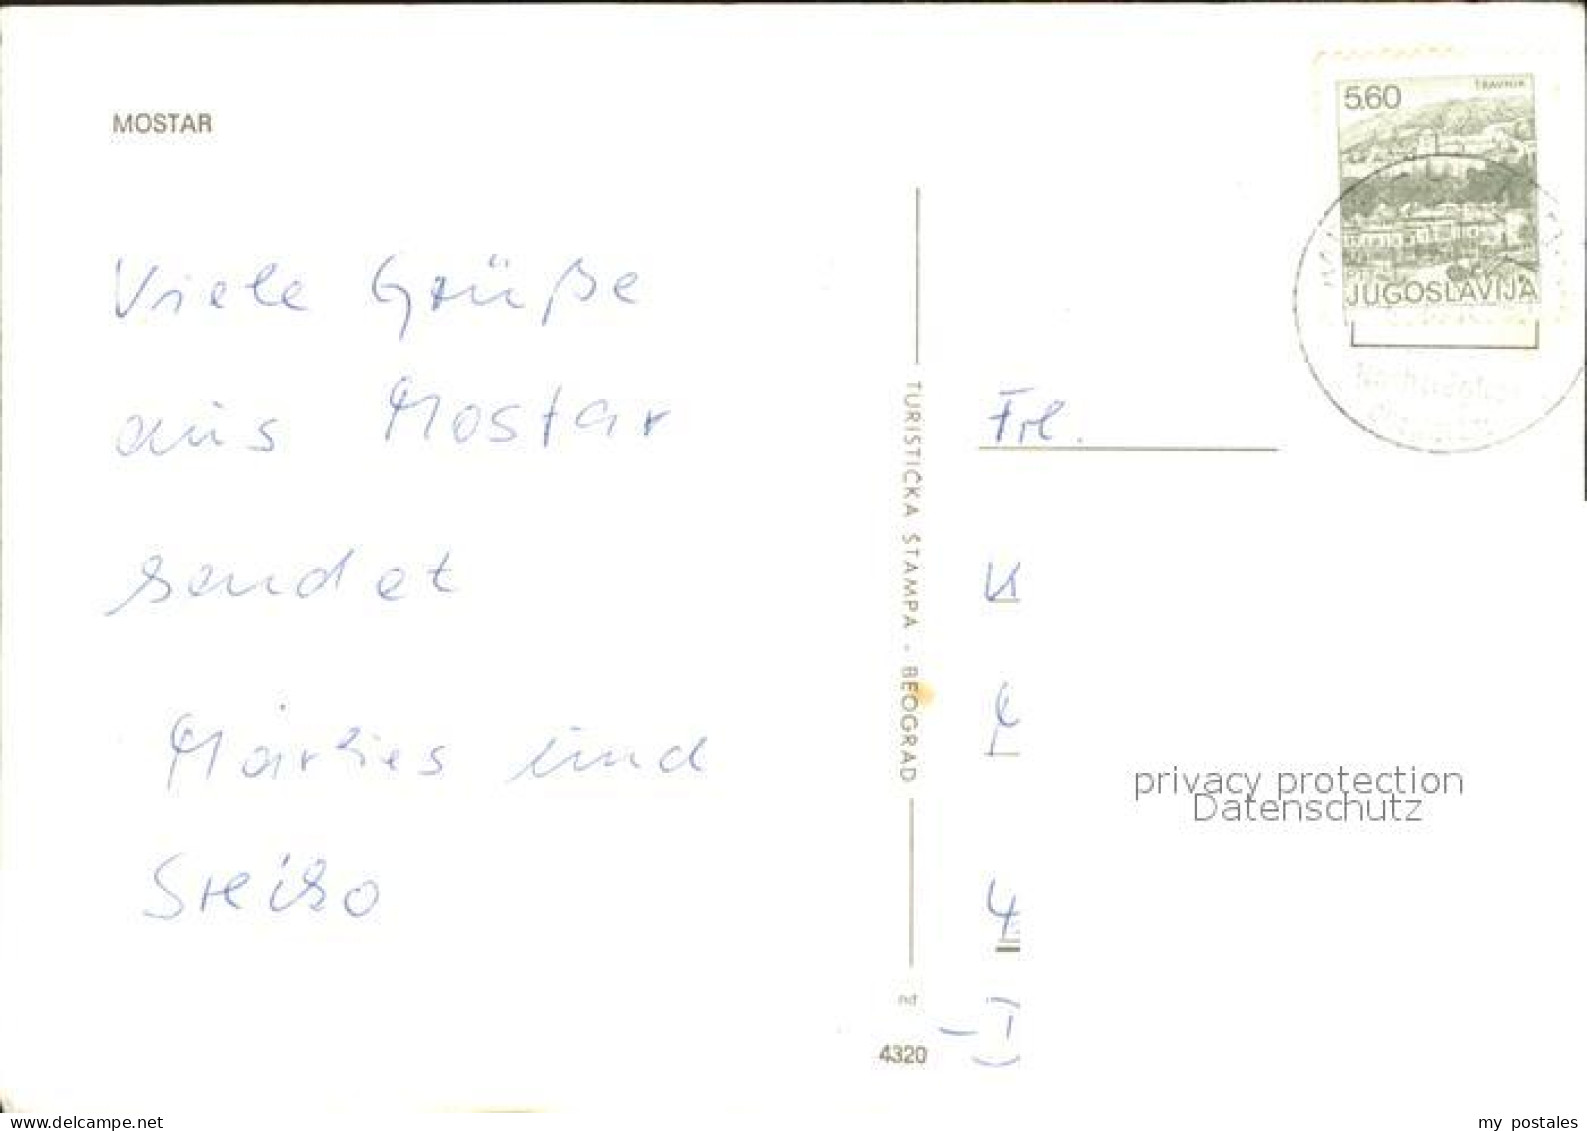 MOSTAR
Viele Grüße
aus Mostar
sendet
Marlies und
TURISTIČKA ŠTAMPA - BEOGRAD
4320
5.60
TRAVNIK
PTT
JUGOSLAVIJA
Frl.
privacy protection
Datenschutz
www.delcampe.net
my_postales